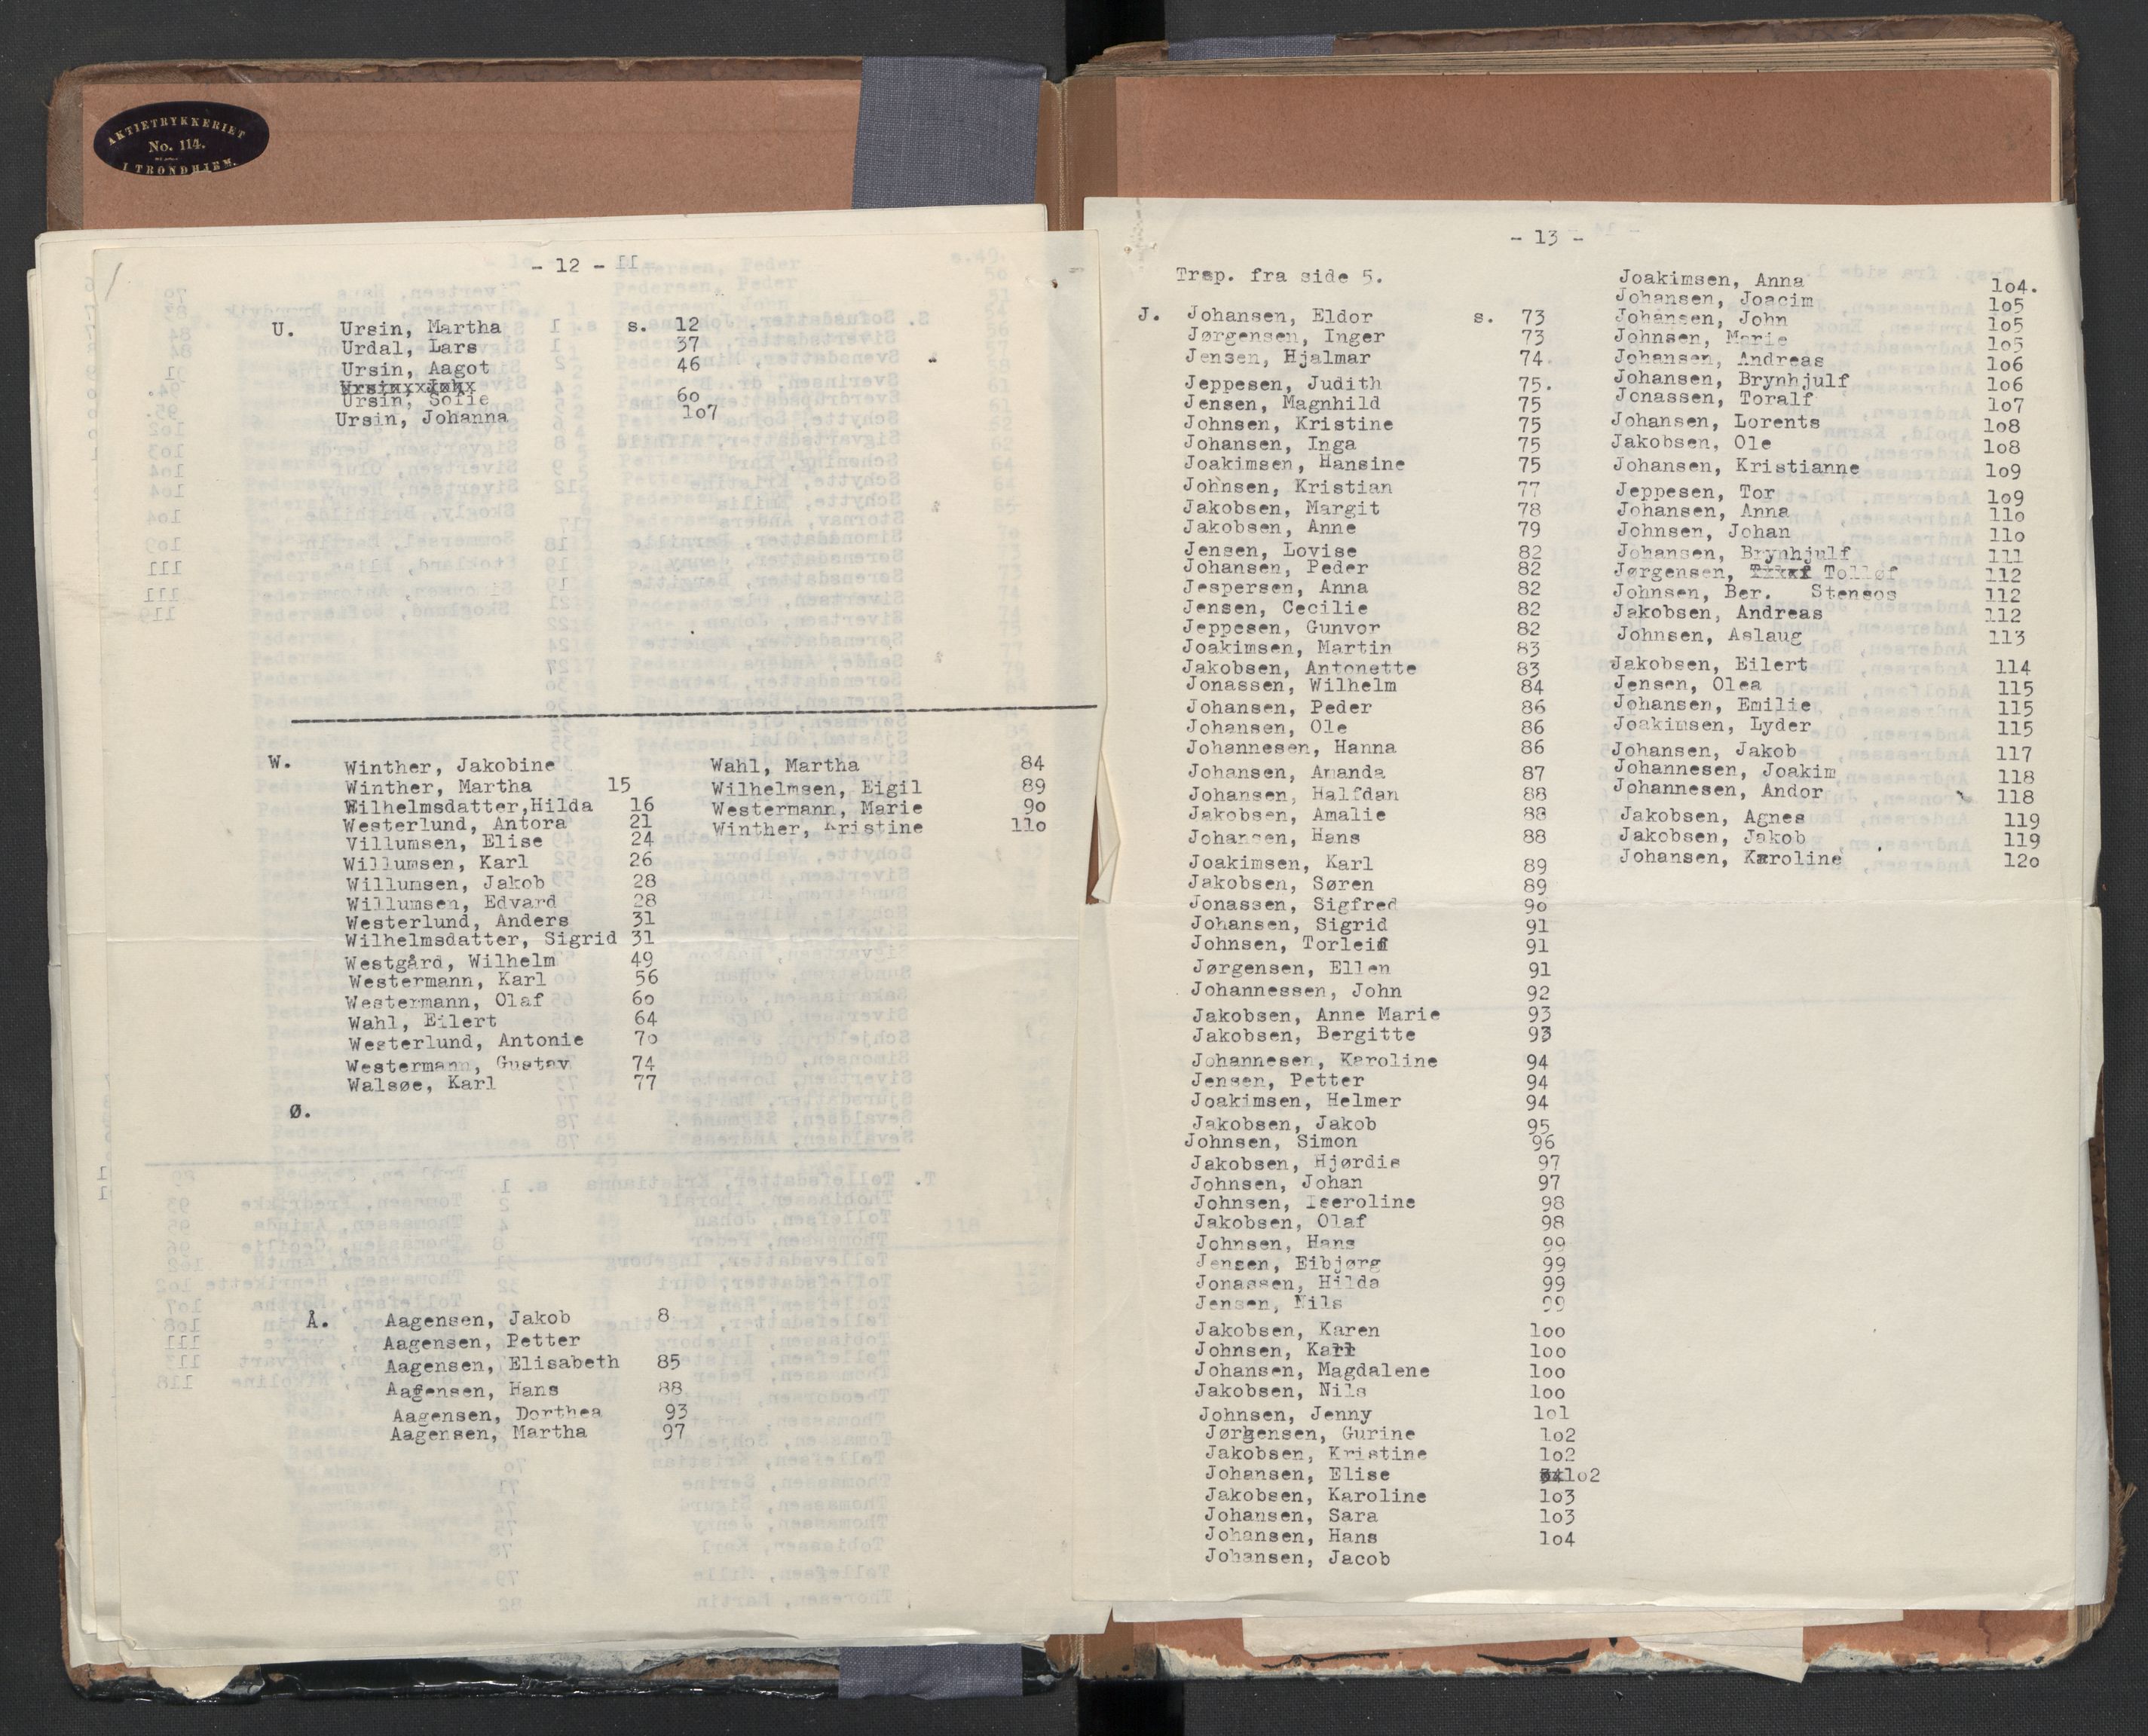 AKTIETRYKKERIET
No. 114.
I TRONDHJEM.
- 12 -
U. Ursin, Martha s. 12
Urdal, Lars 37
Ursin, Aagot 46
Ursin, Sofie 60
Ursin, Johanna 107
W. Winther, Jakobine
Winther, Martha 15
Wilhelmsdatter,Hilda 16
Westerlund, Antora 21
Villumsen, Elise 24
Willumsen, Karl 26
Willumsen, Jakob 28
Willumsen, Edvard 28
Westerlund, Anders 31
Wilhelmsdatter, Sigrid 31
Westgård, Wilhelm 49
Westermann, Karl 56
Westermann, Olaf 60
Wahl, Eilert 64
Westerlund, Antonie 70
Westermann, Gustav 74
Walsøe, Karl 77
Wahl, Martha 84
Wilhelmsen, Eigil 89
Westermann, Marie 90
Winther, Kristine 110
Ø.
Å. Aagensen, Jakob 8
Aagensen, Petter
Aagensen, Elisabeth 85
Aagensen, Hans 88
Aagensen, Dorthea 93
Aagensen, Martha 97
- 13 -
Trsp. fra side 5.
J. Johansen, Eldor s. 73
Jørgensen, Inger 73
Jensen, Hjalmar 74.
Jeppesen, Judith 75.
Jensen, Magnhild 75
Johnsen, Kristine 75
Johansen, Inga 75
Joakimsen, Hansine 75
Johnsen, Kristian 77
Jakobsen, Margit 78
Jakobsen, Anne 79
Jensen, Lovise 82
Johansen, Peder 82
Jespersen, Anna 82
Jensen, Cecilie 82
Jeppesen, Gunvor 82
Joakimsen, Martin 83
Jakobsen, Antonette 83
Jonassen, Wilhelm 84
Johansen, Peder 86
Johansen, Ole 86
Johannesen, Hanna 86
Johansen, Amanda 87
Johansen, Halfdan 88
Jakobsen, Amalie 88
Johansen, Hans 88
Joakimsen, Karl 89
Jakobsen, Søren 89
Jonassen, Sigfred 90
Johansen, Sigrid 91
Johnsen, Torleif 91
Jørgensen, Ellen 91
Johannessen, John 92
Jakobsen, Anne Marie 93
Jakobsen, Bergitte 93
Johannesen, Karoline 94
Jensen, Petter 94
Joakimsen, Helmer 94
Jakobsen, Jakob 95
Johnsen, Simon 96
Jakobsen, Hjørdis 97
Johnsen, Johan 97
Johnsen, Iseroline 98
Jakobsen, Olaf 98
Johnsen, Hans 99
Jensen, Eibjørg 99
Jonassen, Hilda 99
Jensen, Nils 99
Jakobsen, Karen 100
Johnsen, Karl 100
Johansen, Magdalene 100
Jakobsen, Nils 100
Johnsen, Jenny 101
Jørgensen, Gurine 102
Jakobsen, Kristine 102
Johansen, Elise 102
Jakobsen, Karoline 103
Johansen, Sara 103
Johansen, Hans 104
Johansen, Jacob
Joakimsen, Anna 104.
Johansen, Joacim 105
Johansen, John 105
Johnsen, Marie 105
Johansen, Andreas 106
Johansen, Brynhjulf 106
Jonassen, Toralf 107
Johansen, Lorents 108
Jakobsen, Ole 108
Johansen, Kristianne 109
Jeppesen, Tor 109
Johansen, Anna 110
Johnsen, Johan 110
Johansen, Brynhjulf 111
Jørgensen, Tolløf 112
Johnsen, Ber. Stensos 112
Jakobsen, Andreas 112
Johnsen, Aslaug 113
Jakobsen, Eilert 114
Jensen, Olea 115
Johansen, Emilie 115
Joakimsen, Lyder 115
Johansen, Jakob 117
Johannesen, Joakim 118
Johannesen, Andor 118
Jakobsen, Agnes 119
Jakobsen, Jakob 119
Johansen, Karoline 120